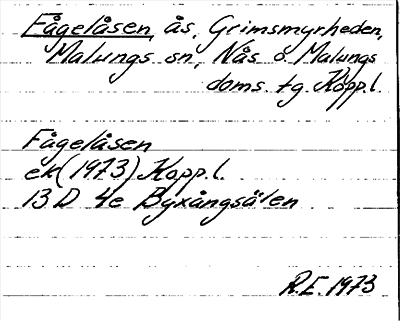 Fågelåsen, ås, Grimsmyrheden,
Malungs sn, Nås o. Malungs
doms. tg. Kopp.l.
Fågelåsen
ek (1973) Kopp.l.
13 D 4e Byxångsälen
R.E. 1973